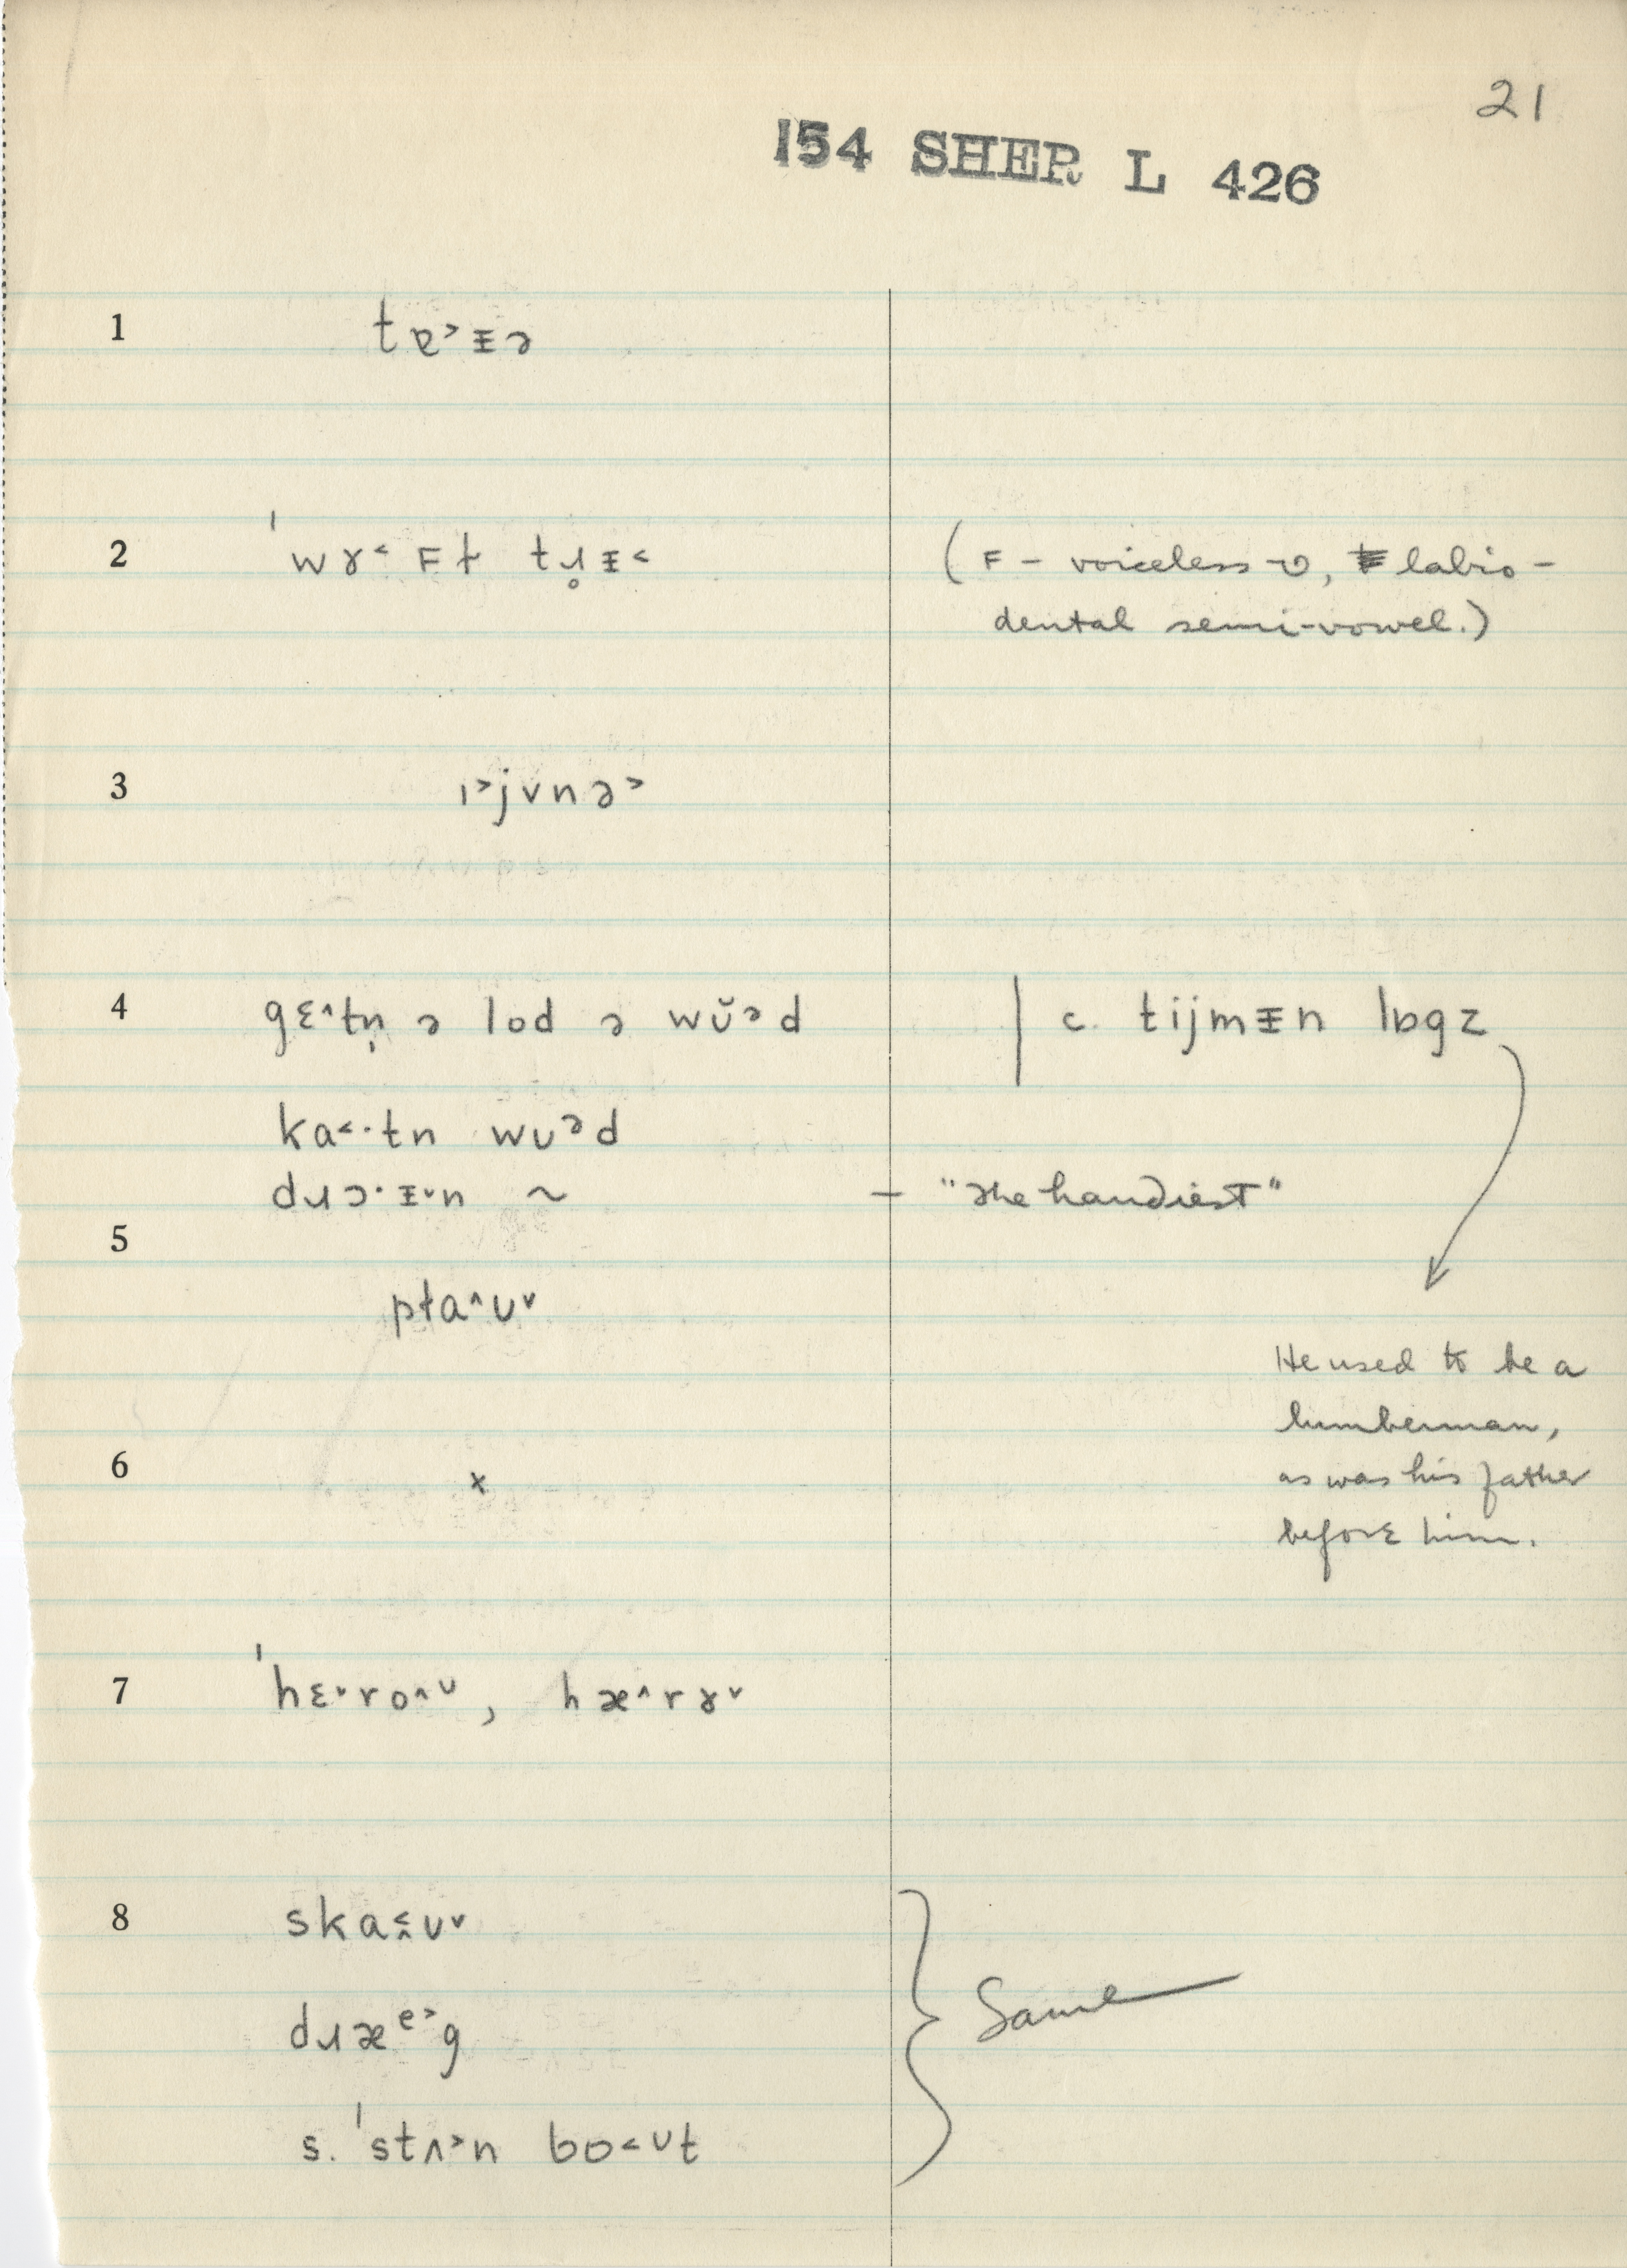 21
154 SHER L 426
1 tɐ˃ᵻə
2 ˈwɤ˂ꜰɫ tɹ̥ᵻ˂ (ꜰ – voiceless ʋ, labio-
dental semi-vowel.)
3 ɪ˃jvnə˃
4 gɛ˄tn̩ ə lod ə wŭᵊd | c. tijmᵻn lɒgz
ka˂·tn wuᵊd
dɹɔ·ᵻ˅n ~ – "the handiest"
5
pɫa˄ʊ˅
He used to be a
lumberman,
6 x as was his father
before him.
7 ˈhɛ˅ro˄ᶷ, hæ˄rɤ˅
8 ska˂˄ʊ˅
dɹæᵉ˃g
s. ˈstʌ˃n bo˂ᶷt
} Same